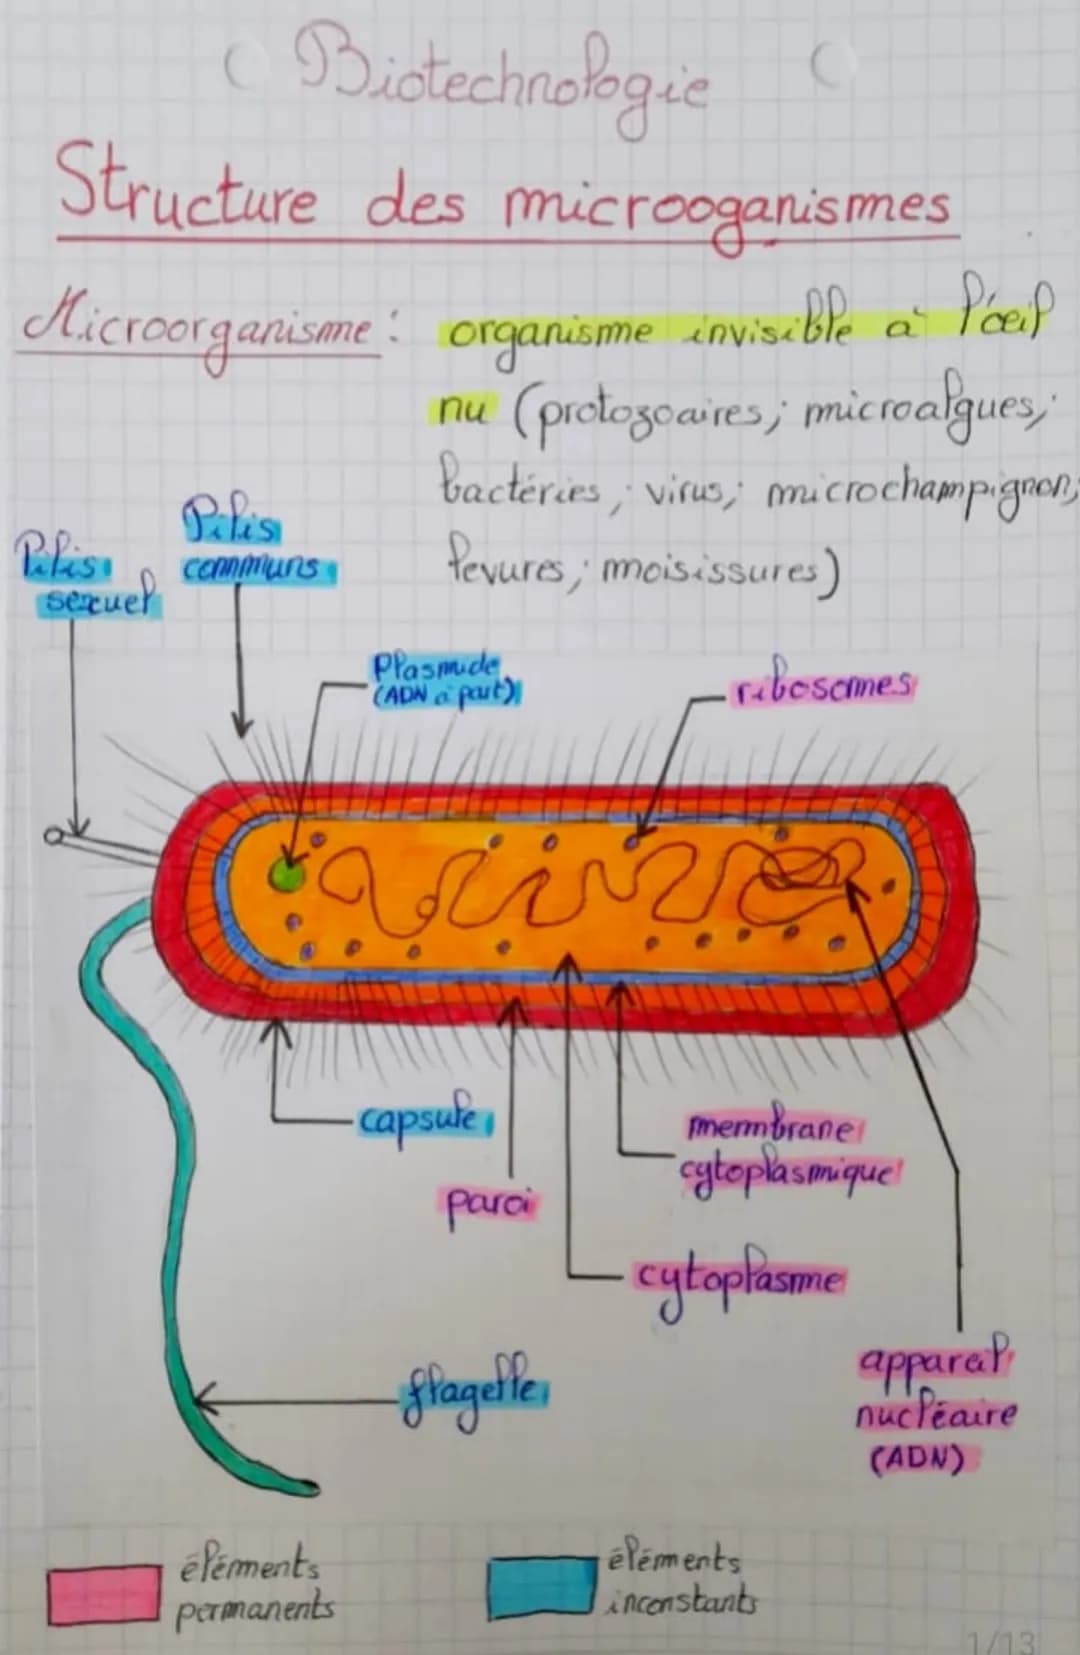 Biotechnologie
Structure des microoganismes
Microorganisme : organisme invisible à l'œil
nu (protozoaires; microalgues;
bactéries; virus; microchampignon;
levures; moisissures)
Pilis
communs
Pilis
sexuel
Plasmide
(ADN à part)
ribosomes
capsule
membrane
cytoplasmique
paroi
cytoplasme
apparat
nucléaire
(ADN)
flagelle
éléments
permanents
éléments
inconstants
1/13